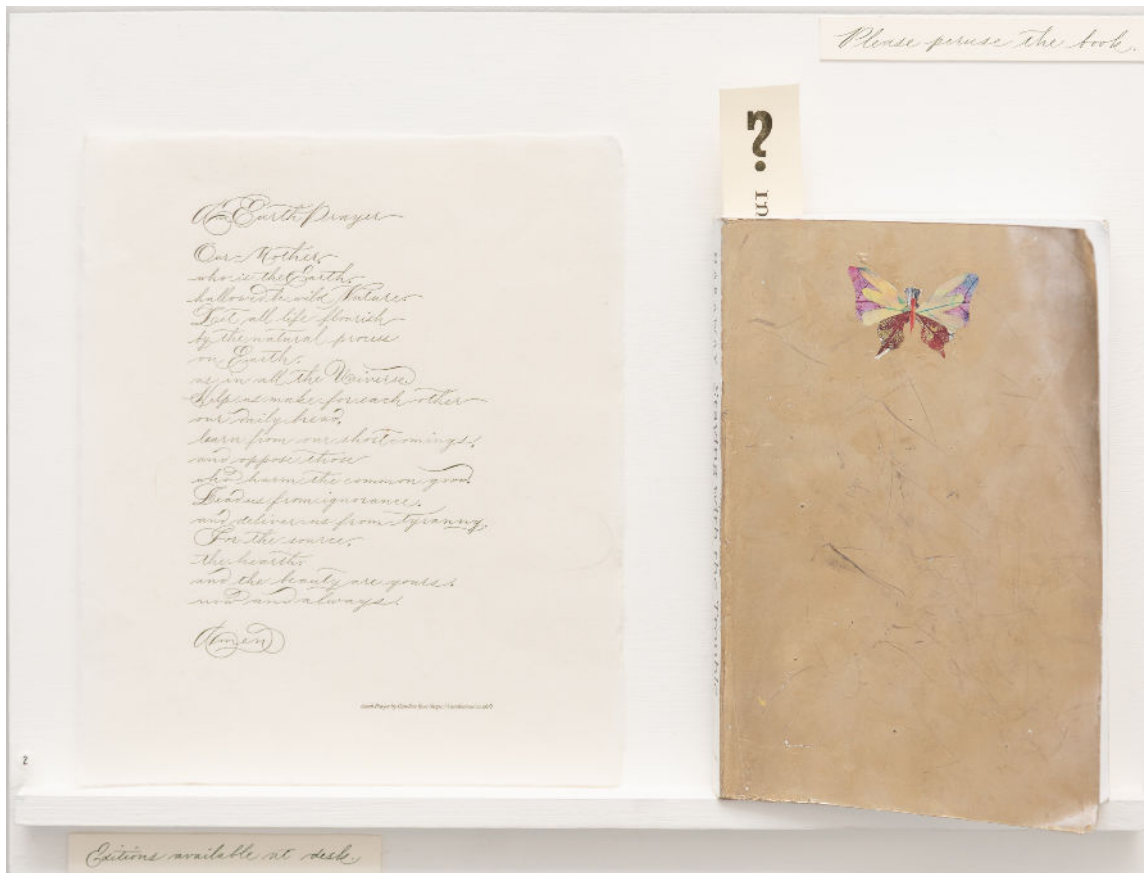 Please peruse the book.
?
in
An Earth Prayer
Our Mother,
who is the Earth,
hallowed be wild Nature.
Let all life flourish
by the natural process
on Earth,
as in all the Universe.
Help us make for each other
our daily bread,
learn from our shortcomings,
and oppose those
who harm the common good.
Lead us from ignorance,
and deliver us from tyranny.
For the source,
the hearth,
and the beauty are yours,
now and always.
Amen
Earth Prayer by
HARAWAY Staying with the Trouble
2
Editions available at desk.